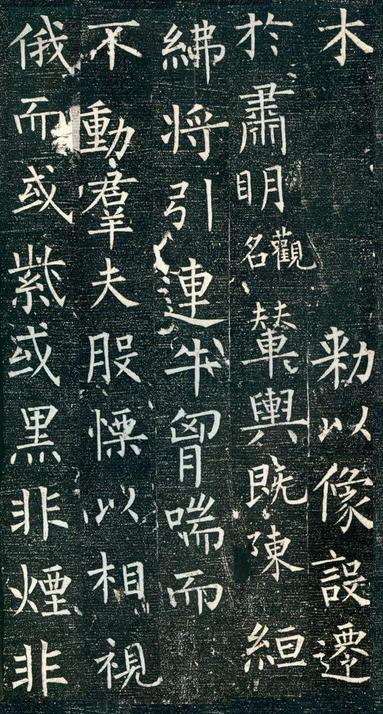 木 勑以像設遷
於肅明觀名輦輿既陳 絙
紼将引連牛胷喘而
不動羣夫股慄以相視
俄而或紫或黒非煙非